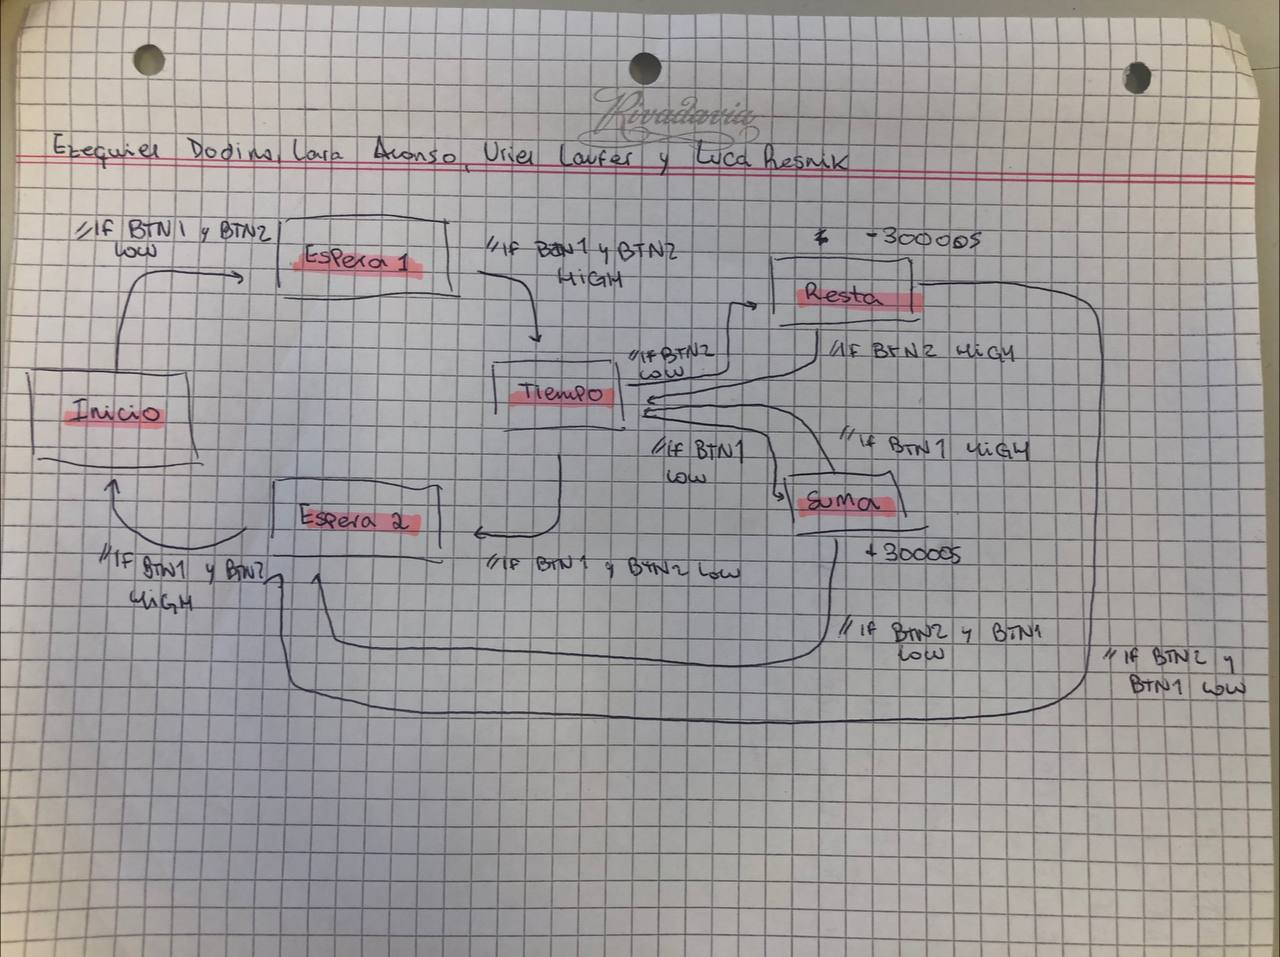 Rivadavia
Ezequiel Dodino, Lara Alonso, Uriel Laufer y Luca Resnik
//If BTN1 y BTN2
LOW
Espera 1
//If BTN1 y BTN2
HIGH
-30000S
Resta
//If BTN2
LOW
//If BTN2 HIGH
Tiempo
Inicio
//If BTN1
LOW
//If BTN1 HIGH
Suma
+30000S
Espera 2
//If BTN1 y BTN2
HIGH
//If BTN1 y BTN2 LOW
//If BTN2 y BTN1
LOW
//If BTN2 y
BTN1 LOW